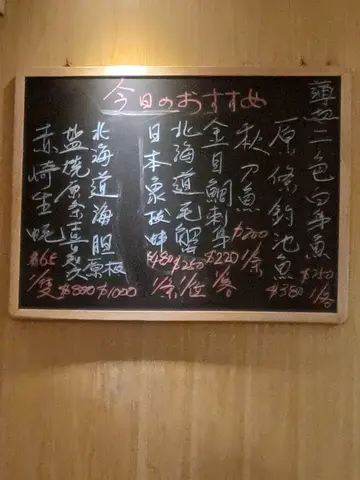 今日のおすすめ
薄切二色白身魚 $250 1客
原條釣池魚 $380
秋刀魚 $200 1条
金目鯛刺身 $220 1客
北海道毛蟹 $250 1位
日本象拔蚌 $480 1条
北海道海胆 原板 $1000
塩焼原条喜知次 $800
赤崎生蚝 $65 1隻